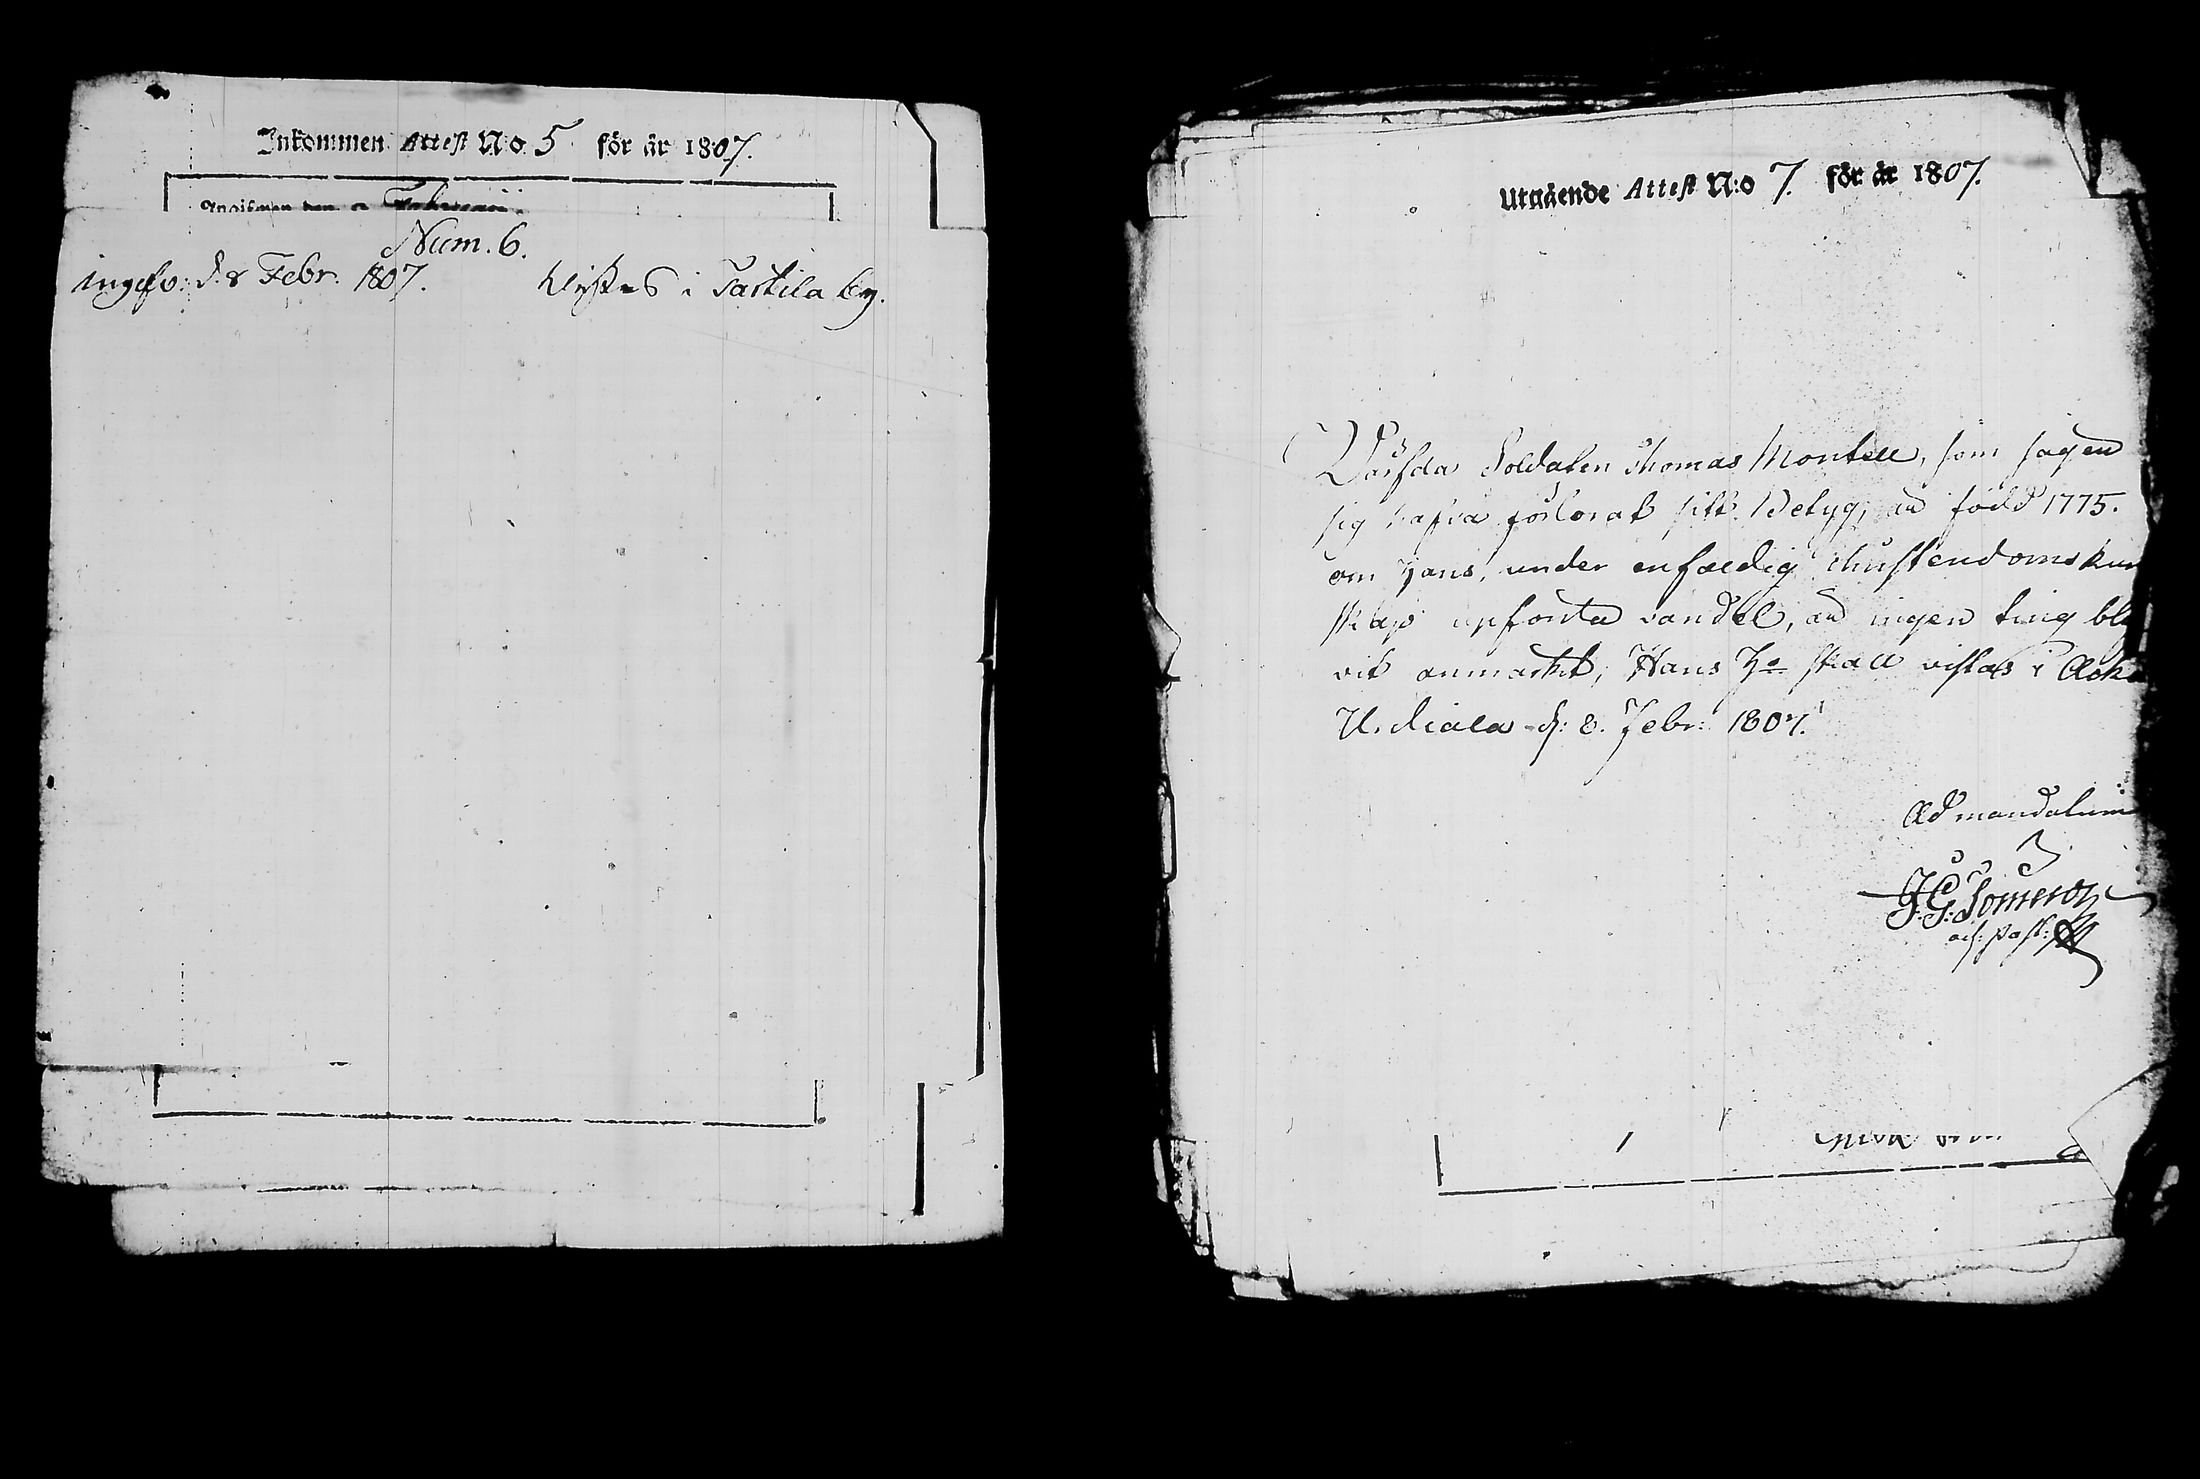 Inkommen Attest N:o 5 för år 1807.
Angifven den Februarii.
Num. 6.
ingifv: d. 8 Febr. 1807. Vistas i Tastila by.
Utgående Attest N:o 7. för år 1807.
Värfda Soldaten Thomas Montell, som sagen
sig hafva förlorat sitt Betyg, är född 1775.
om Hans, under enfaldig christendomskun
skap upförda vandel, är ingen ting ble
vit anmärkt; Hans H:o skall vistas i
U. Kiala d: 8. Febr: 1807.
Ad mandatum
J.G. Someroy